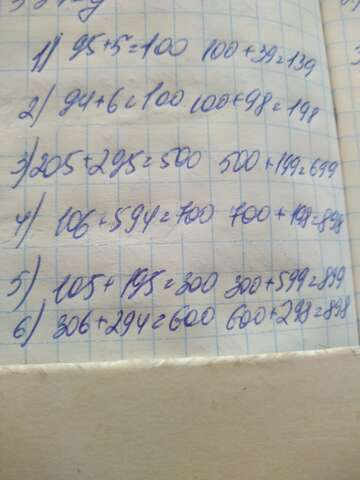 1) 95+5=100 100+39=139
2) 94+6=100 100+98=198
3) 205+295=500 500+199=699
4) 106+594=700 700+198=898
5) 105+195=300 300+599=899
6) 306+294=600 600+298=898